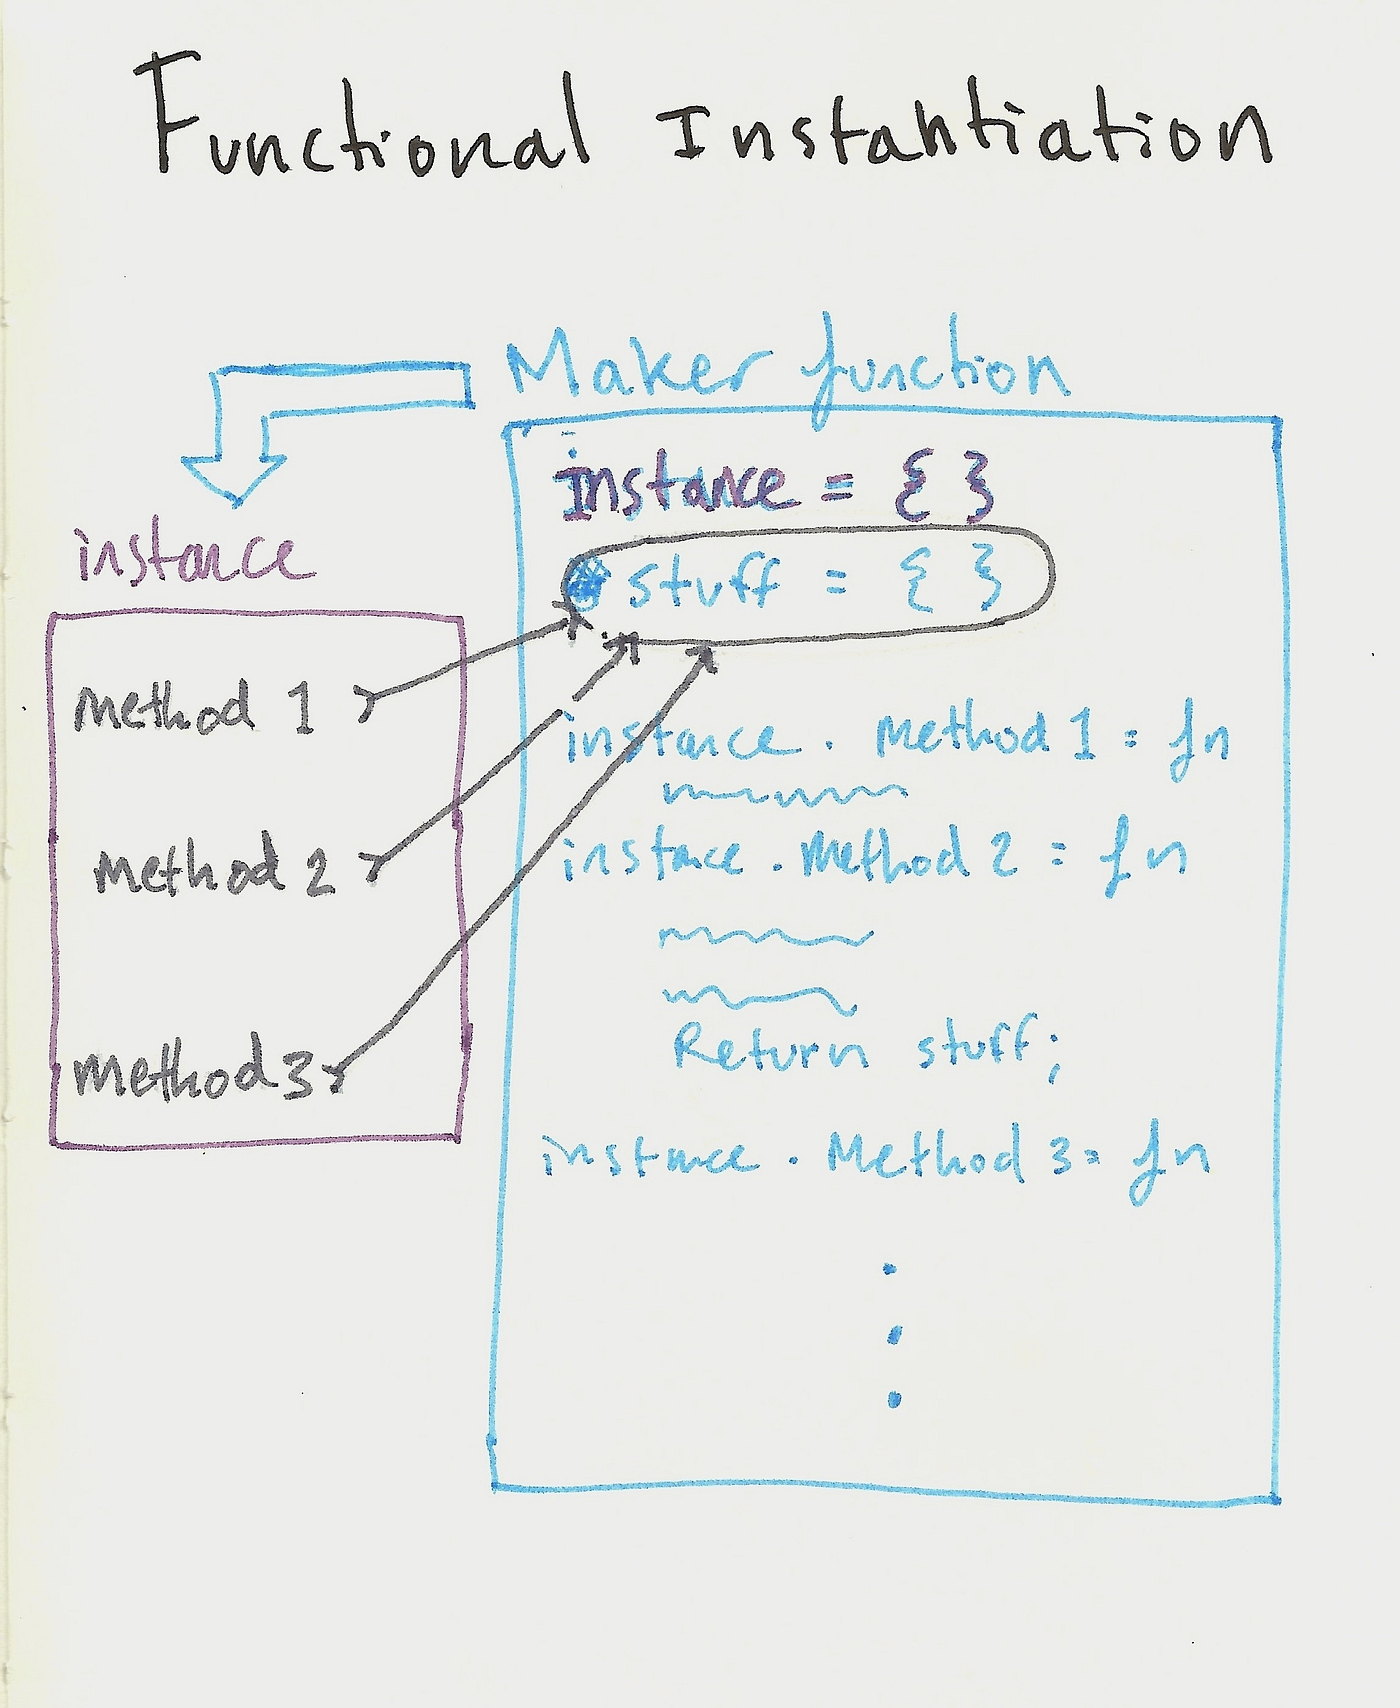 Functional Instantiation
Maker function
instance = { }
stuff = { }
instance
method 1
method 2
method 3
instance . Method 1 = fn
instance . Method 2 = fn
Return stuff;
instance . Method 3 = fn